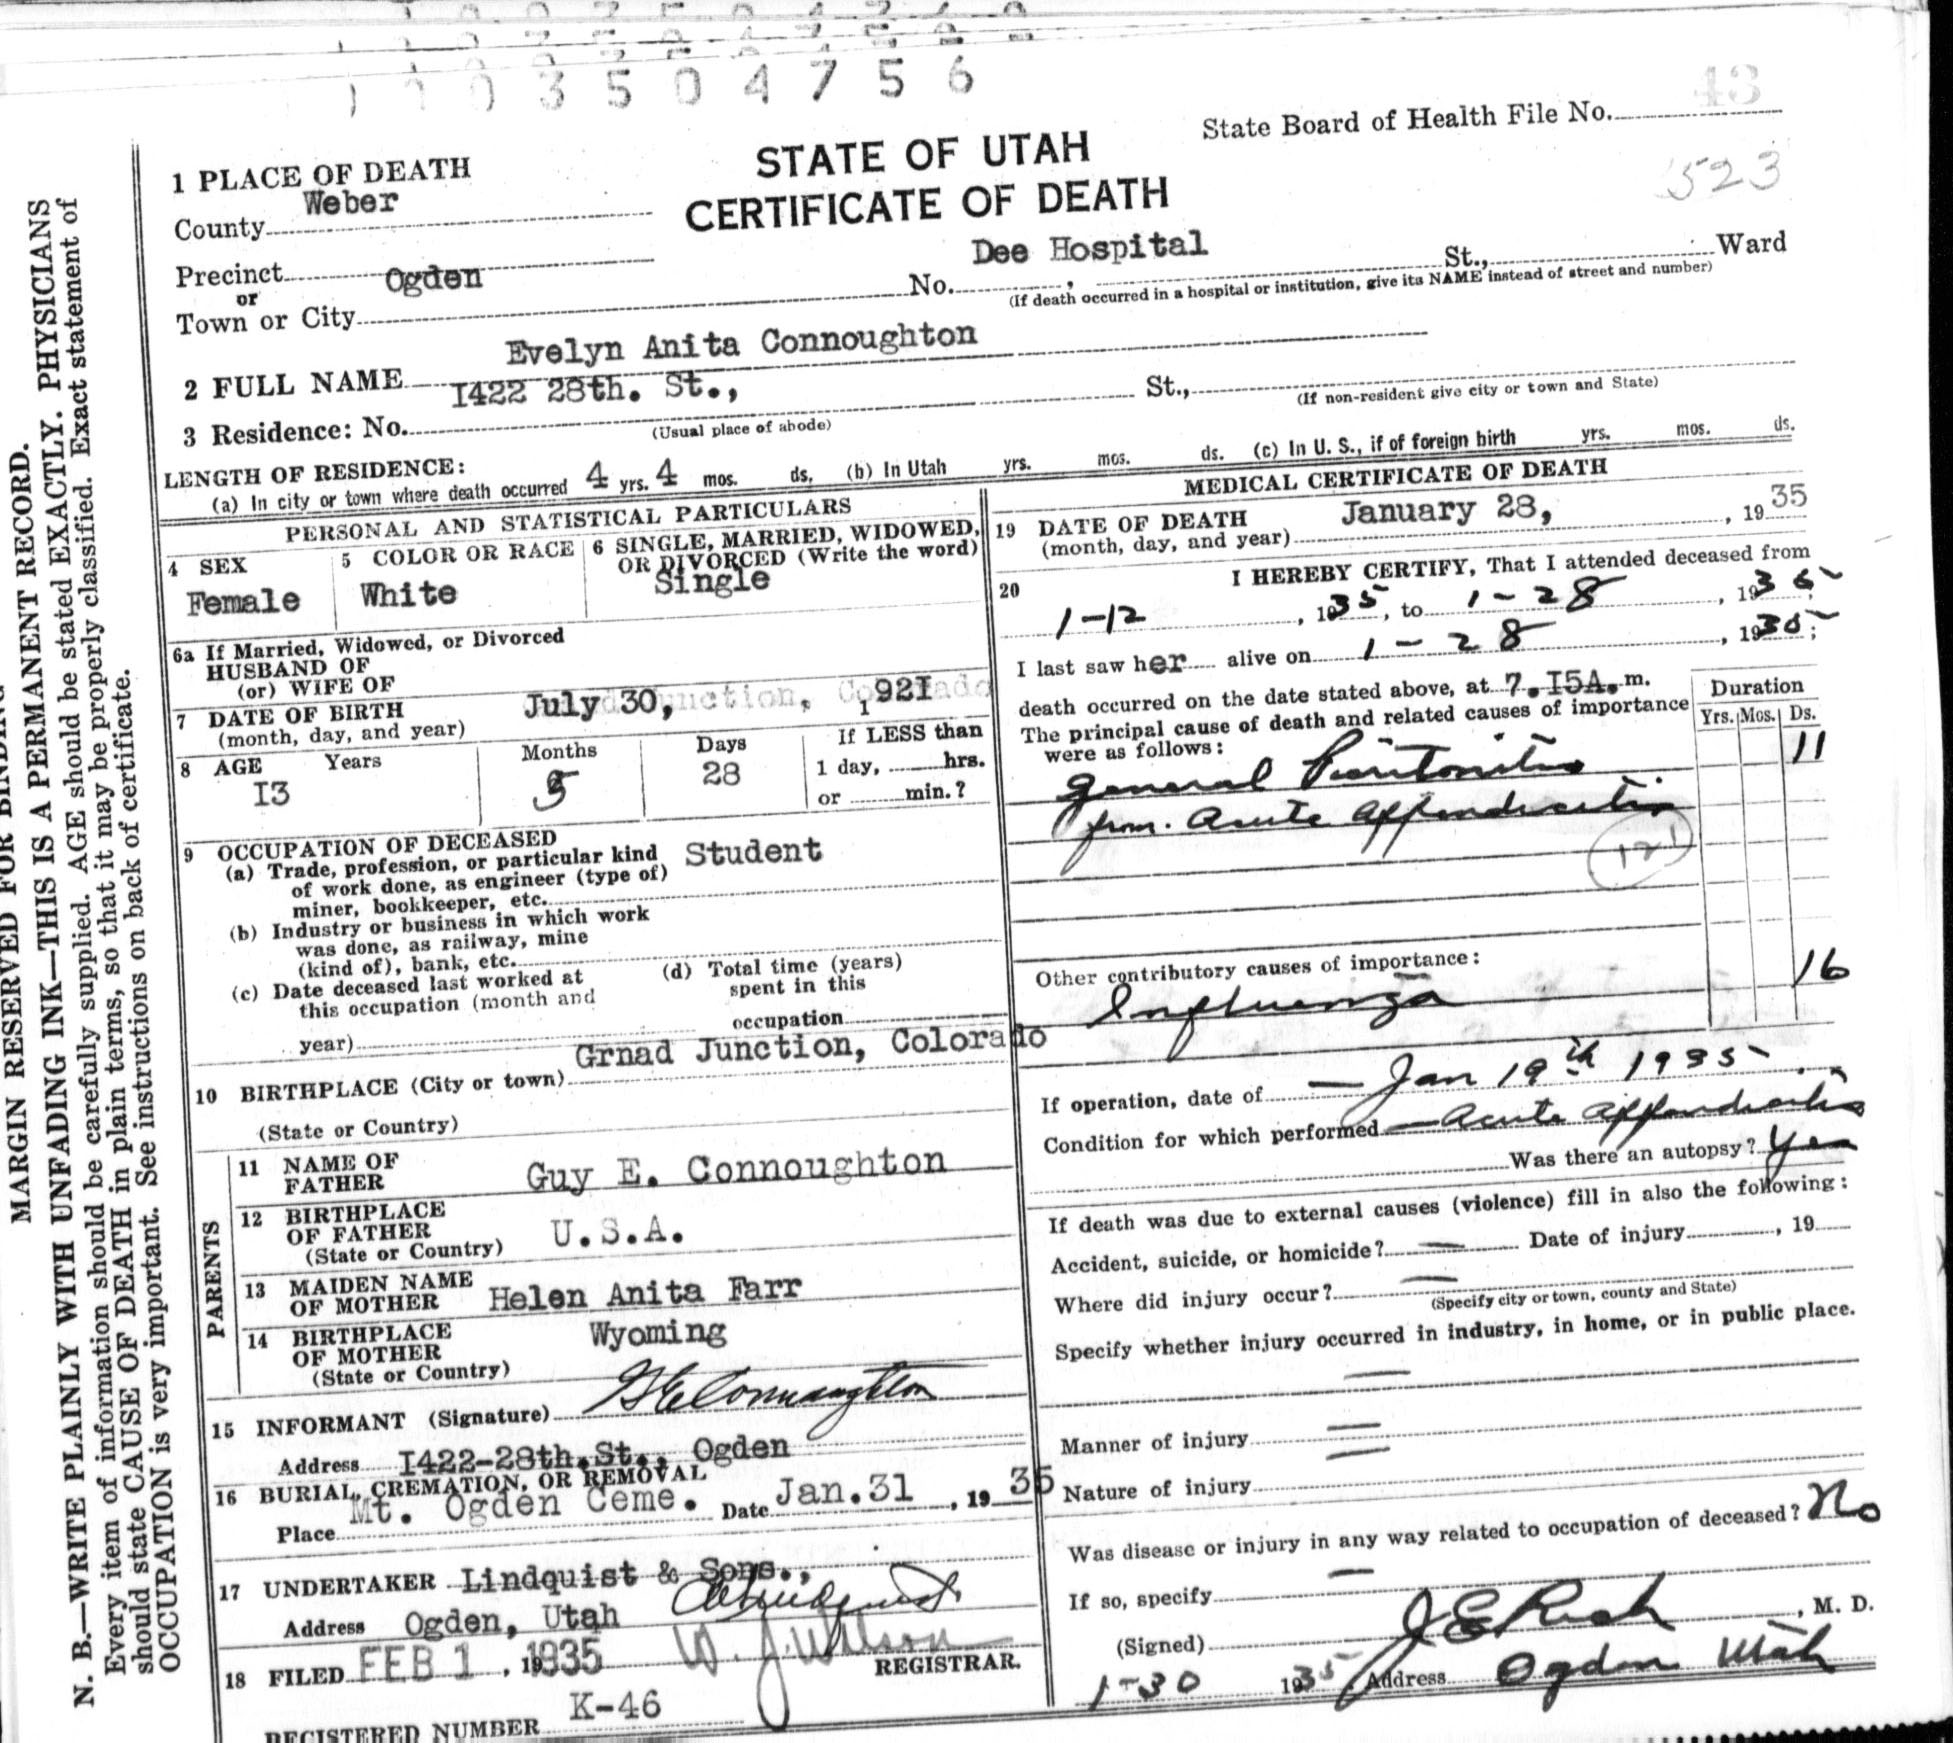 1 1 0 3 5 0 4 7 5 6
43
State Board of Health File No.
523
STATE OF UTAH
CERTIFICATE OF DEATH
1 PLACE OF DEATH
County Weber
Precinct
or
Town or City Ogden
No. Dee Hospital St., Ward
(If death occurred in a hospital or institution, give its NAME instead of street and number)
2 FULL NAME Evelyn Anita Connoughton
3 Residence: No. I422 28th. St., St.,
(Usual place of abode)
(If non-resident give city or town and State)
LENGTH OF RESIDENCE:
(a) In city or town where death occurred 4 yrs. 4 mos. ds. (b) In Utah yrs. mos. ds. (c) In U. S., if of foreign birth yrs. mos. ds.
PERSONAL AND STATISTICAL PARTICULARS
4 SEX
Female
5 COLOR OR RACE
White
6 SINGLE, MARRIED, WIDOWED,
OR DIVORCED (Write the word)
Single
6a If Married, Widowed, or Divorced
HUSBAND OF
(or) WIFE OF
7 DATE OF BIRTH
(month, day, and year)
July 30, 192I
8 AGE Years Months Days
I3 5 28
If LESS than
1 day, hrs.
or min.?
9 OCCUPATION OF DECEASED
(a) Trade, profession, or particular kind
of work done, as engineer (type of)
miner, bookkeeper, etc.
Student
(b) Industry or business in which work
was done, as railway, mine
(kind of), bank, etc.
(c) Date deceased last worked at
this occupation (month and
year)
(d) Total time (years)
spent in this
occupation
10 BIRTHPLACE (City or town) Grnad Junction, Colorado
(State or Country)
PARENTS
11 NAME OF
FATHER
Guy E. Connoughton
12 BIRTHPLACE
OF FATHER
(State or Country)
U.S.A.
13 MAIDEN NAME
OF MOTHER
Helen Anita Farr
14 BIRTHPLACE
OF MOTHER
(State or Country)
Wyoming
15 INFORMANT (Signature) G E Connaughton
Address I422-28th.St., Ogden
16 BURIAL, CREMATION, OR REMOVAL
Place Mt. Ogden Ceme. Date Jan.31 , 19 35
17 UNDERTAKER Lindquist & Sons.,
Address Ogden, Utah
18 FILED FEB 1 , 1935 W. J. Wilson
REGISTRAR.
REGISTERED NUMBER K-46
MEDICAL CERTIFICATE OF DEATH
19 DATE OF DEATH
(month, day, and year) January 28, , 19 35
20 I HEREBY CERTIFY, That I attended deceased from
1-12 , 1935, to 1-28 , 1935,
I last saw her alive on 1-28 , 1935;
death occurred on the date stated above, at 7.I5A.m.
The principal cause of death and related causes of importance
were as follows:
Duration
Yrs. Mos. Ds.
General Peritonitis 11
from. Acute Appendicitis
121
Other contributory causes of importance:
Influenza 16
If operation, date of — Jan 19th 1935
Condition for which performed — Acute Appendicitis
Was there an autopsy? Yes
If death was due to external causes (violence) fill in also the following:
Accident, suicide, or homicide? — Date of injury , 19
Where did injury occur? —
(Specify city or town, county and State)
Specify whether injury occurred in industry, in home, or in public place.
—
Manner of injury —
Nature of injury —
Was disease or injury in any way related to occupation of deceased? No
If so, specify —
(Signed) J E Rich , M. D.
1-30 1935 Address Ogden Utah
MARGIN RESERVED FOR BINDING
N. B.—WRITE PLAINLY WITH UNFADING INK—THIS IS A PERMANENT RECORD.
Every item of information should be carefully supplied. AGE should be stated EXACTLY. PHYSICIANS
should state CAUSE OF DEATH in plain terms, so that it may be properly classified. Exact statement of
OCCUPATION is very important. See instructions on back of certificate.